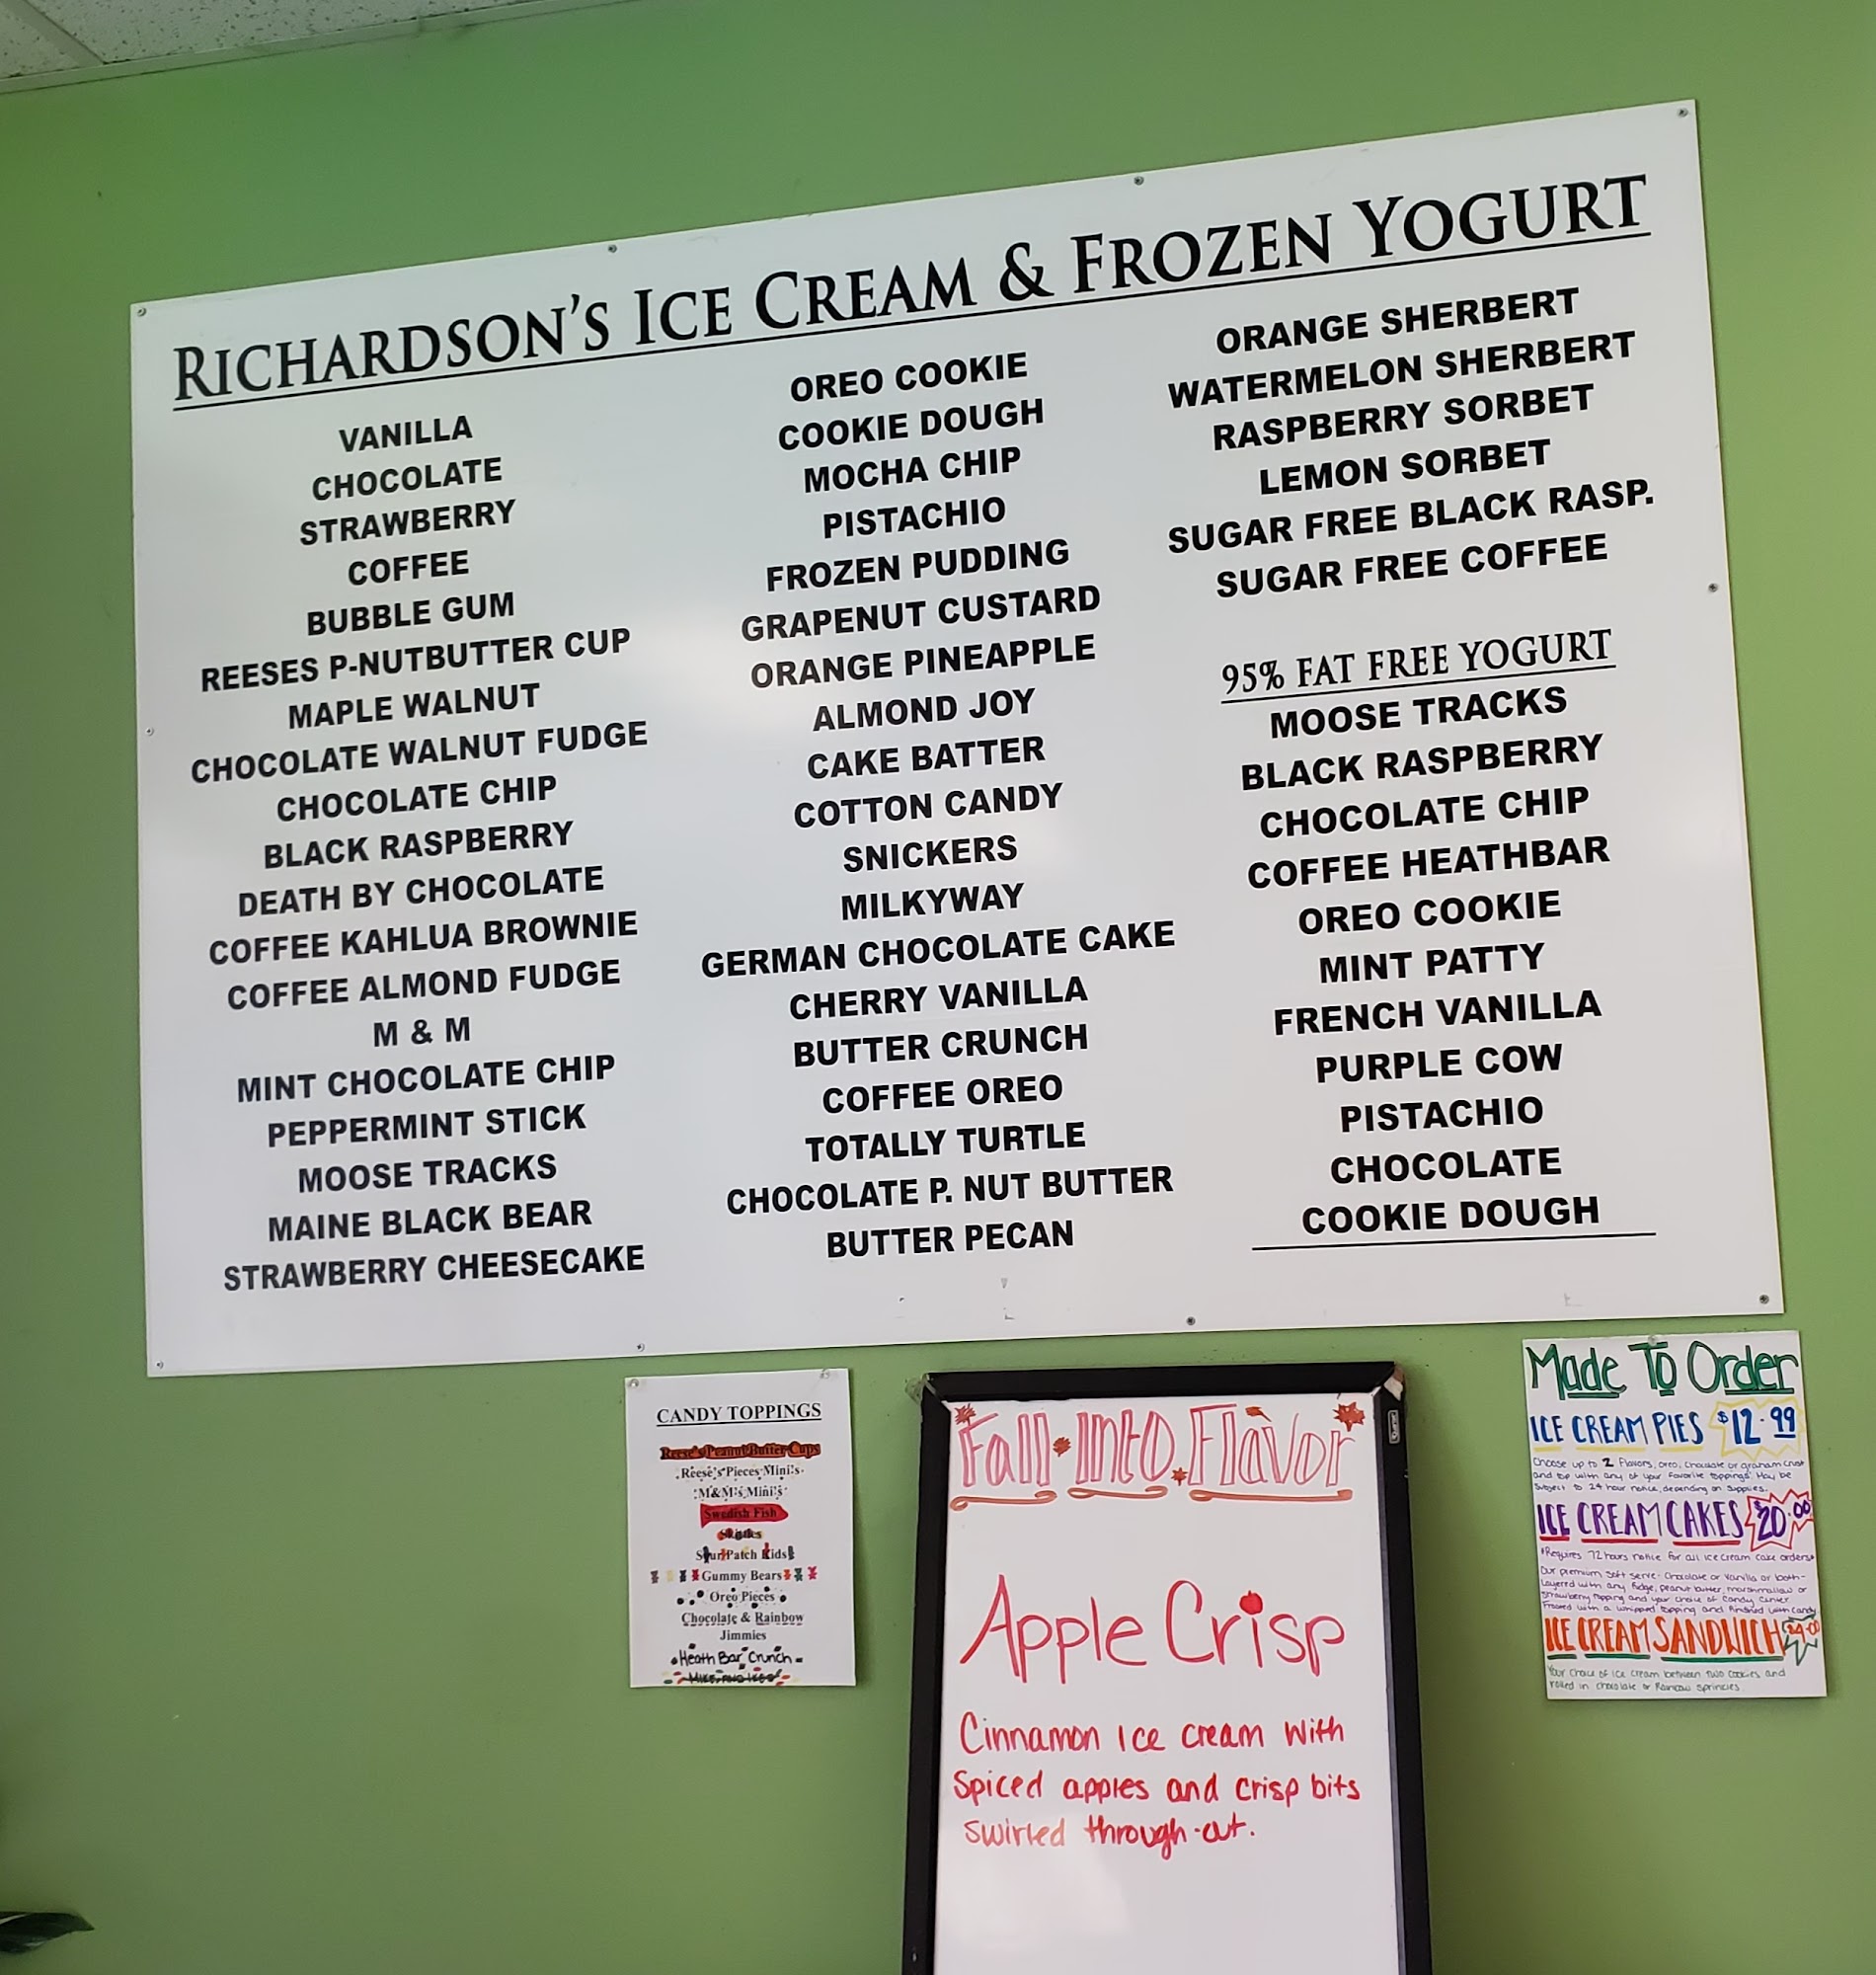 RICHARDSON'S ICE CREAM & FROZEN YOGURT
VANILLA
CHOCOLATE
STRAWBERRY
COFFEE
BUBBLE GUM
REESES P-NUTBUTTER CUP
MAPLE WALNUT
CHOCOLATE WALNUT FUDGE
CHOCOLATE CHIP
BLACK RASPBERRY
DEATH BY CHOCOLATE
COFFEE KAHLUA BROWNIE
COFFEE ALMOND FUDGE
M & M
MINT CHOCOLATE CHIP
PEPPERMINT STICK
MOOSE TRACKS
MAINE BLACK BEAR
STRAWBERRY CHEESECAKE
OREO COOKIE
COOKIE DOUGH
MOCHA CHIP
PISTACHIO
FROZEN PUDDING
GRAPENUT CUSTARD
ORANGE PINEAPPLE
ALMOND JOY
CAKE BATTER
COTTON CANDY
SNICKERS
MILKYWAY
GERMAN CHOCOLATE CAKE
CHERRY VANILLA
BUTTER CRUNCH
COFFEE OREO
TOTALLY TURTLE
CHOCOLATE P. NUT BUTTER
BUTTER PECAN
ORANGE SHERBERT
WATERMELON SHERBERT
RASPBERRY SORBET
LEMON SORBET
SUGAR FREE BLACK RASP.
SUGAR FREE COFFEE
95% FAT FREE YOGURT
MOOSE TRACKS
BLACK RASPBERRY
CHOCOLATE CHIP
COFFEE HEATHBAR
OREO COOKIE
MINT PATTY
FRENCH VANILLA
PURPLE COW
PISTACHIO
CHOCOLATE
COOKIE DOUGH
CANDY TOPPINGS
Reese's Peanut Butter Cups
Reese's Pieces Mini's
M&M's Mini's
Swedish Fish
Skittles
Sour Patch Kids
Gummy Bears
Oreo Pieces
Chocolate & Rainbow
Jimmies
Heath Bar Crunch
Fall Into Flavor
Apple Crisp
Cinnamon Ice cream with
Spiced apples and crisp bits
swirled through-out.
Made To Order
ICE CREAM PIES $12.99
Choose up to 2 flavors, oreo, chocolate or graham crust
and top with any of your favorite toppings. May be
Subject to 24 hour notice, depending on supplies.
ICE CREAM CAKES $20.00
*Requires 72 hours notice for all ice cream cake orders*
Our premium soft serve- Chocolate or Vanilla or both-
Layered with any fudge, peanut butter, marshmallow or
strawberry topping and your choice of candy center.
Frosted with a whipped topping and finished with candy
ICE CREAM SANDWICH
Your choice of ice cream between two cookies and
rolled in chocolate or Rainbow Sprinkles